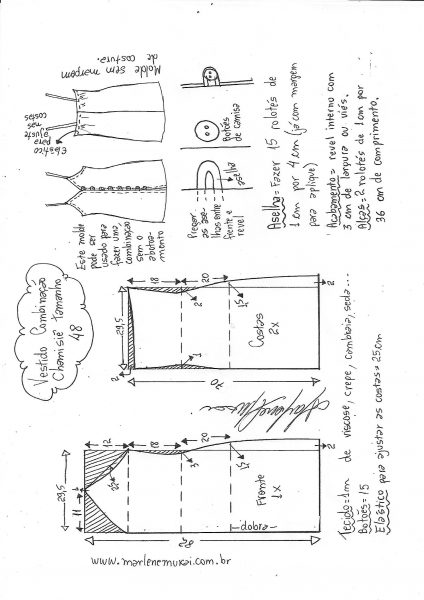 Vestido Combinação
Chamisiê Tamanho
48
Este molde
pode ser
usado para
fazer uma
combinação
sem o
abotoamento
Elástico
para
ajuste
nas
costas
Molde sem margem
de costura.
Pregar
as ase-
lhas entre
frente e
revel
aselha
Botões
de camisa
Aselha = Fazer 15 rolotês de
1cm por 4cm (já com margem
para aplique)
Acabamento = revel interno com
3cm de largura ou viés.
Alças = 2 rolotês de 1cm por
36cm de comprimento.
29,5
18
20
2
2
1,5
1
2
Costas
2x
70
29,5
11
12
18
20
2
3
1,5
2
Frente
1x
dobra
82
Tecido = 1m de viscose, crepe, cambraia, seda...
Botões = 15
Elástico para ajustar as costas = 25cm
www.marlenemukai.com.br